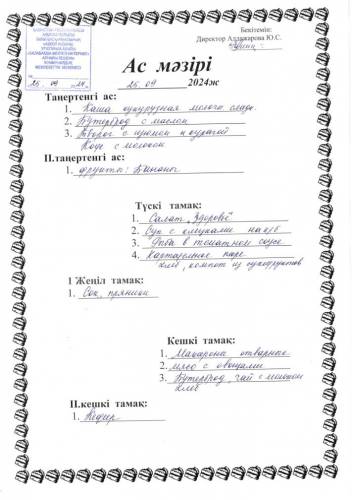 Бекітемін:
Директор Алдажарова Ю.С.
26 09 24
Ас мәзірі
26.09 2024ж
Таңертенгі ас:
1. Каша кукурузная молочн сладк.
2. Бутерброд с маслом
3. Творог с изюмом и курагой
Кофе с молоком
II.таңертенгі ас:
1. фрукты: Бананы
Түскі тамақ:
1. Салат "Здоровье"
2. Суп с клецками на к/б
3. Рыба в томатном соусе
4. Картофельное пюре
хлеб, компот из сухофруктов
1 Жеңіл тамақ:
1. Сок, пряники
Кешкі тамақ:
1. Макароны отварные
2. мясо с овощами
3. Бутерброд, чай с молоком
хлеб
II.кешкі тамақ:
1. Кефир